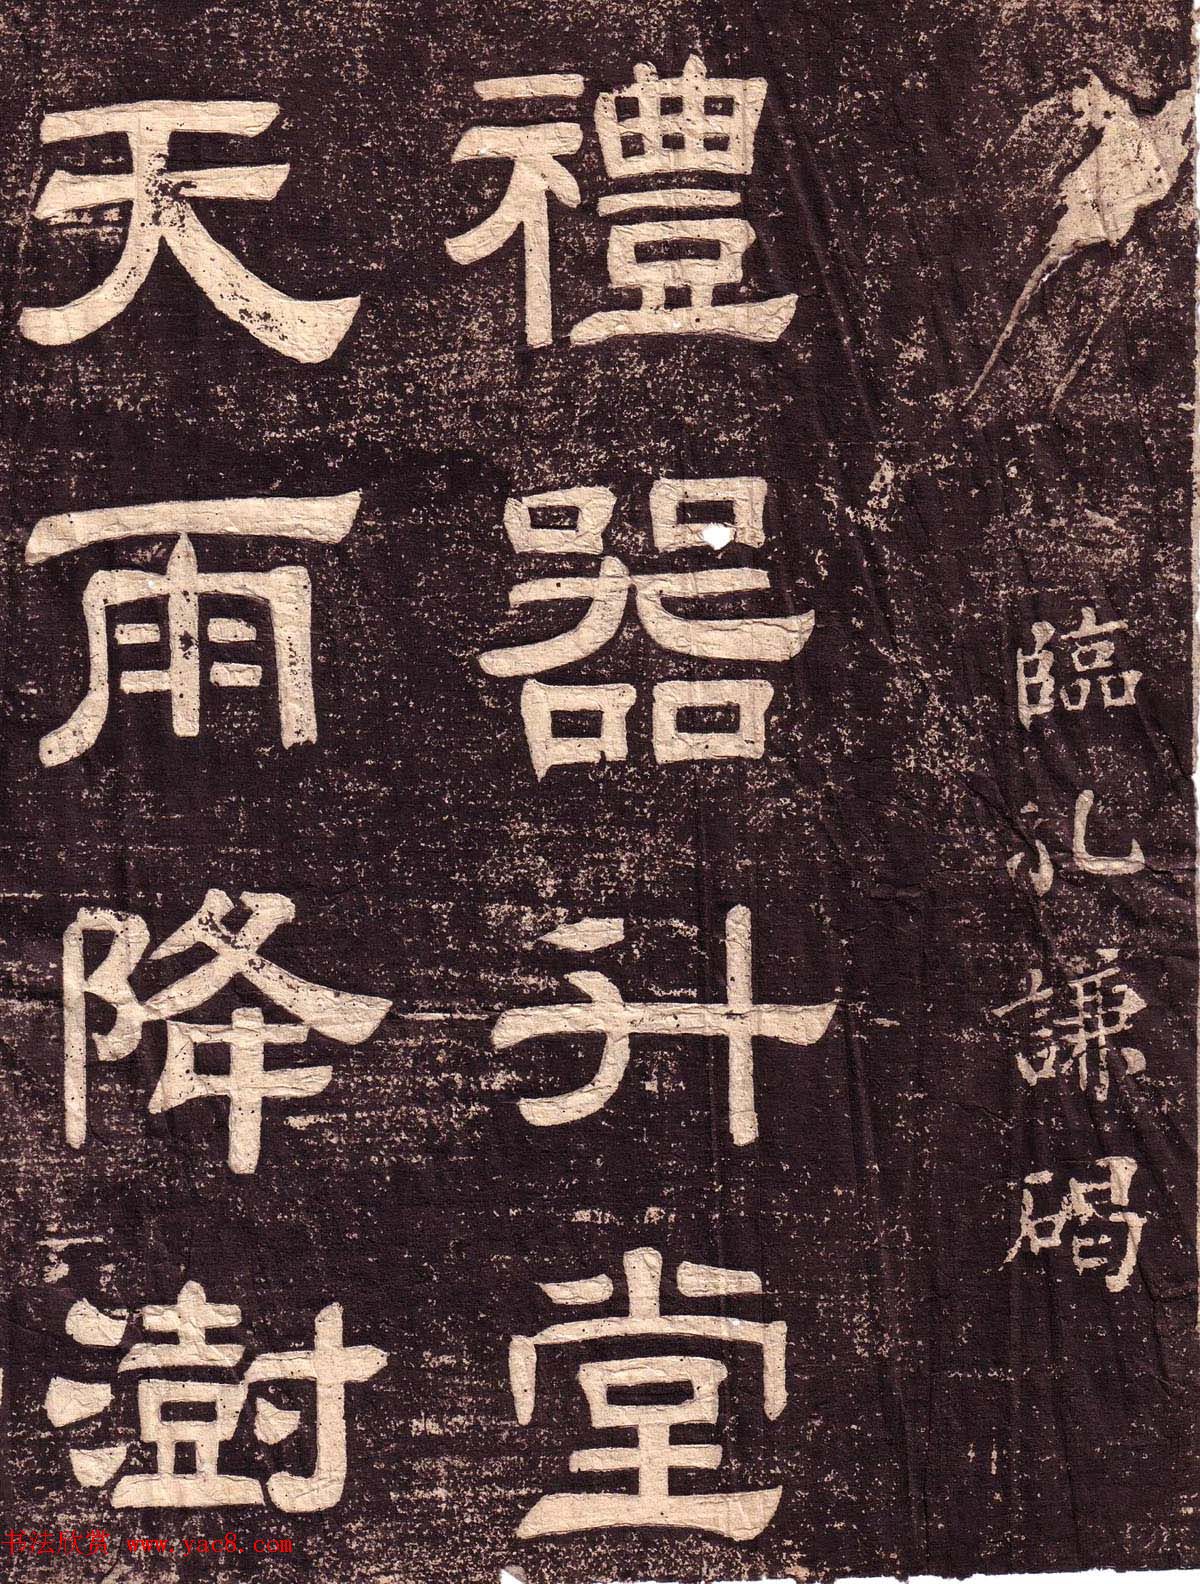 臨孔謙碣
禮器升堂
天雨降澍
书法欣赏 www.yac8.com